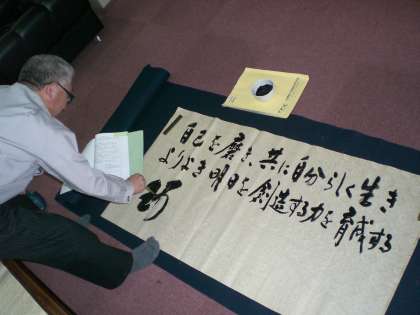 自己を磨き、共に自分らしく生き
よりよき明日を創造する力を育成する